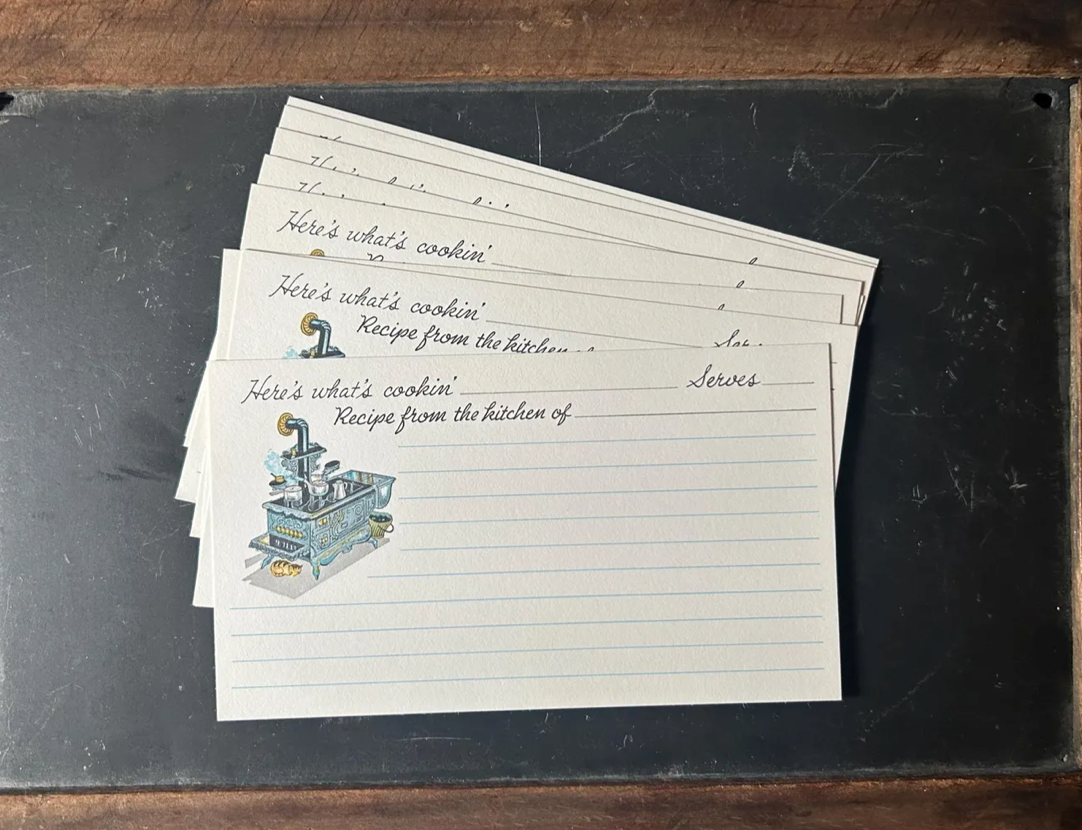 Here's what's cookin'
Here's what's cookin'
Recipe from the kitchen
Here's what's cookin' Serves
Recipe from the kitchen of